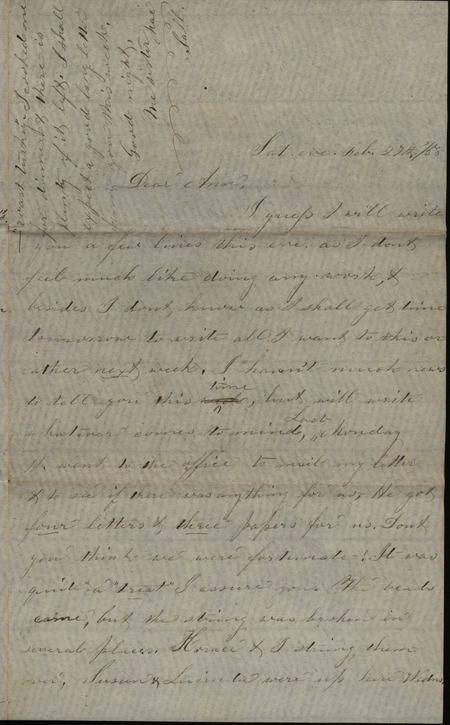 roast turkey. I cooked one
for dinner & there is
plenty of it left. I shall
expect a good long letter
from you this week.
Good night,
Sat. eve. Feb. 27th,
Dear Anna,
I guess I will write
you a few lines this eve. as I don't
feel much like doing any work, &
besides I dont know as I shall get time
tomorrow to write all I want to this or
rather next week. I haven't much news
to tell you this time, but will write
whatever comes to mind. Last Monday
H. went to the office to mail my letter
& to see if there was anything for us. He got
four letters & three papers for us. Dont
you think we were fortunate! It was
quite a "treat" I assure you. The beads
came, but the string was broken in
several places. Horace & I strung them
over. Susan & Lucinda were up here Wednes